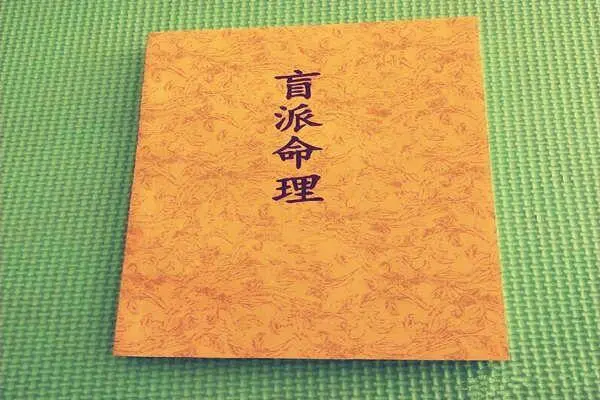 盲派命理